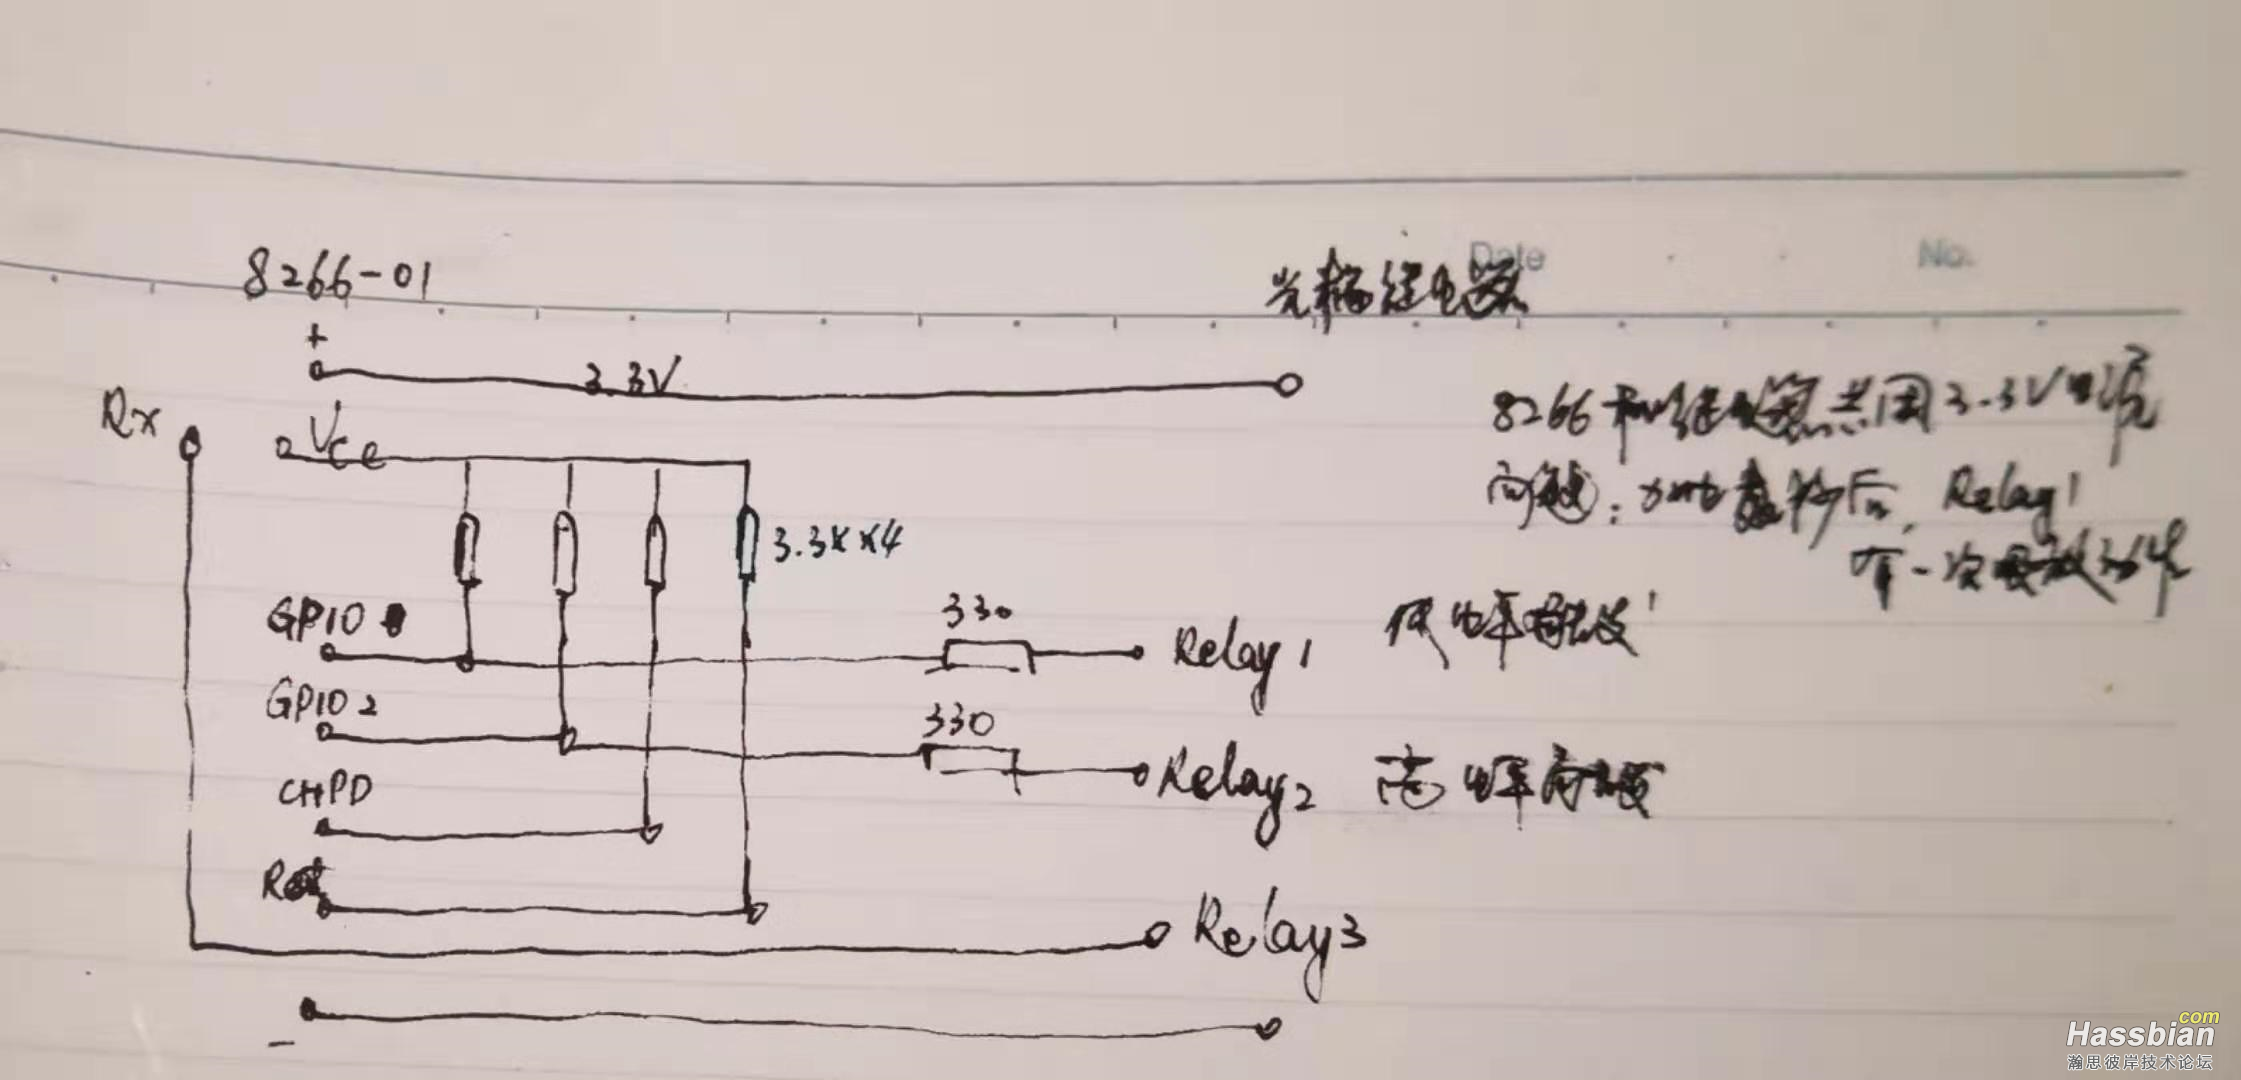 Date
No.
8266-01
光耦继电器
+
3.3V
Rx
Vcc
8266和继电器共用3.3V电源
问题：加电数秒后，Relay1
有一次
3.3K×4
GPIO 0
330
Relay1
低电平触发
GPIO 2
330
Relay2
高电平触发
CHPD
Rst
Relay3
-
Hassbian
.com
瀚思彼岸技术论坛